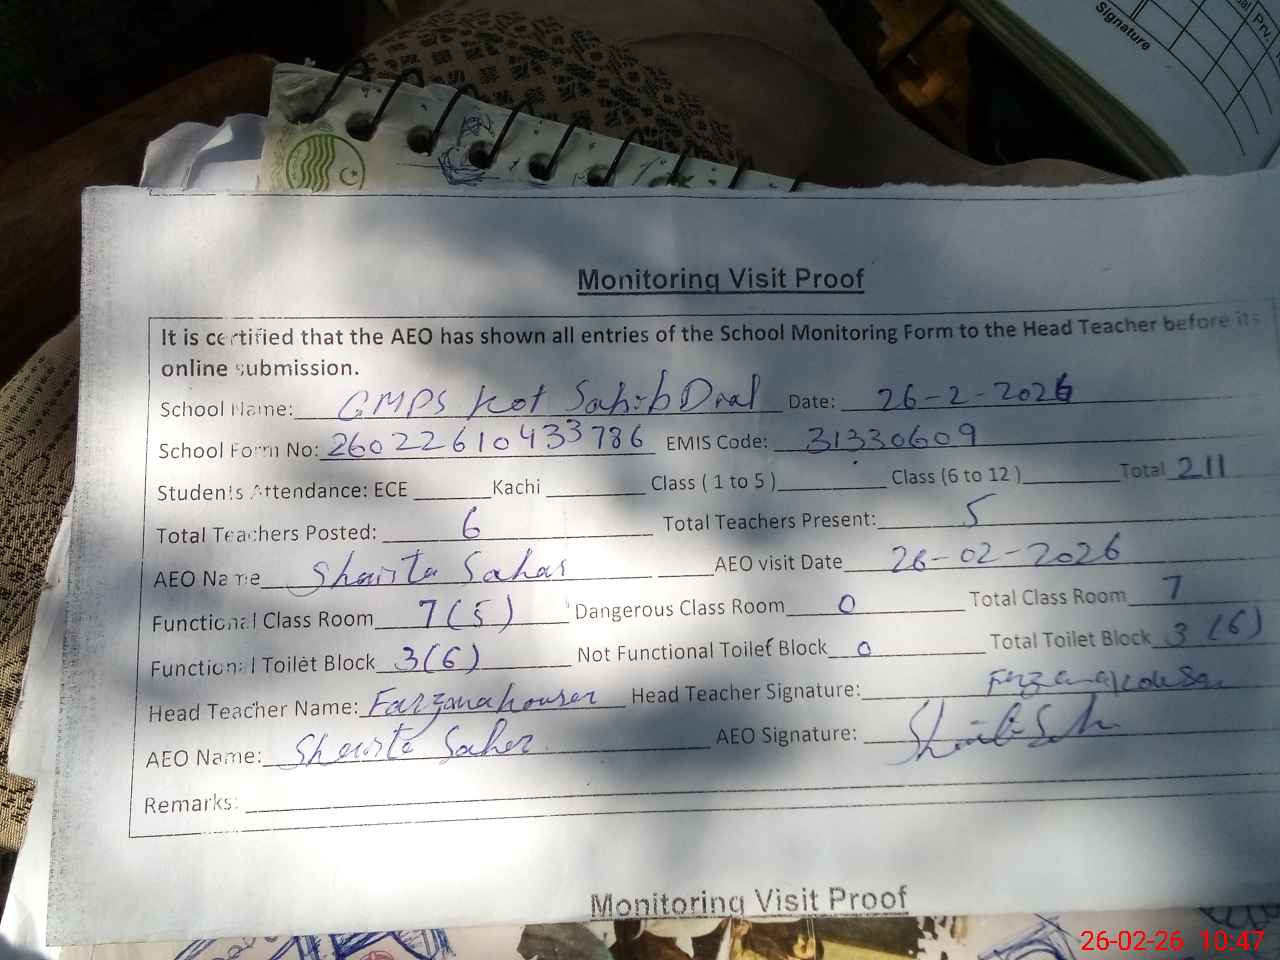 Signature
Prv.
Monitoring Visit Proof
It is certified that the AEO has shown all entries of the School Monitoring Form to the Head Teacher before its
online submission.
School Name: GMPS Kot Sahib Dial Date: 26-2-2026
School Form No: 26022610433786 EMIS Code: 31330609
Students Attendance: ECE Kachi Class ( 1 to 5 ) Class (6 to 12 ) Total 211
Total Teachers Posted: 6 Total Teachers Present: 5
AEO Name Shaista Sahar AEO visit Date 26-02-2026
Functional Class Room 7(5) Dangerous Class Room 0 Total Class Room 7
Functional Toilet Block 3(6) Not Functional Toilet Block 0 Total Toilet Block 3 (6)
Head Teacher Name: Farzana kousar Head Teacher Signature: Farzana Kousar
AEO Name: Shaista Saher AEO Signature:
Remarks:
Monitoring Visit Proof
26-02-26 10:47